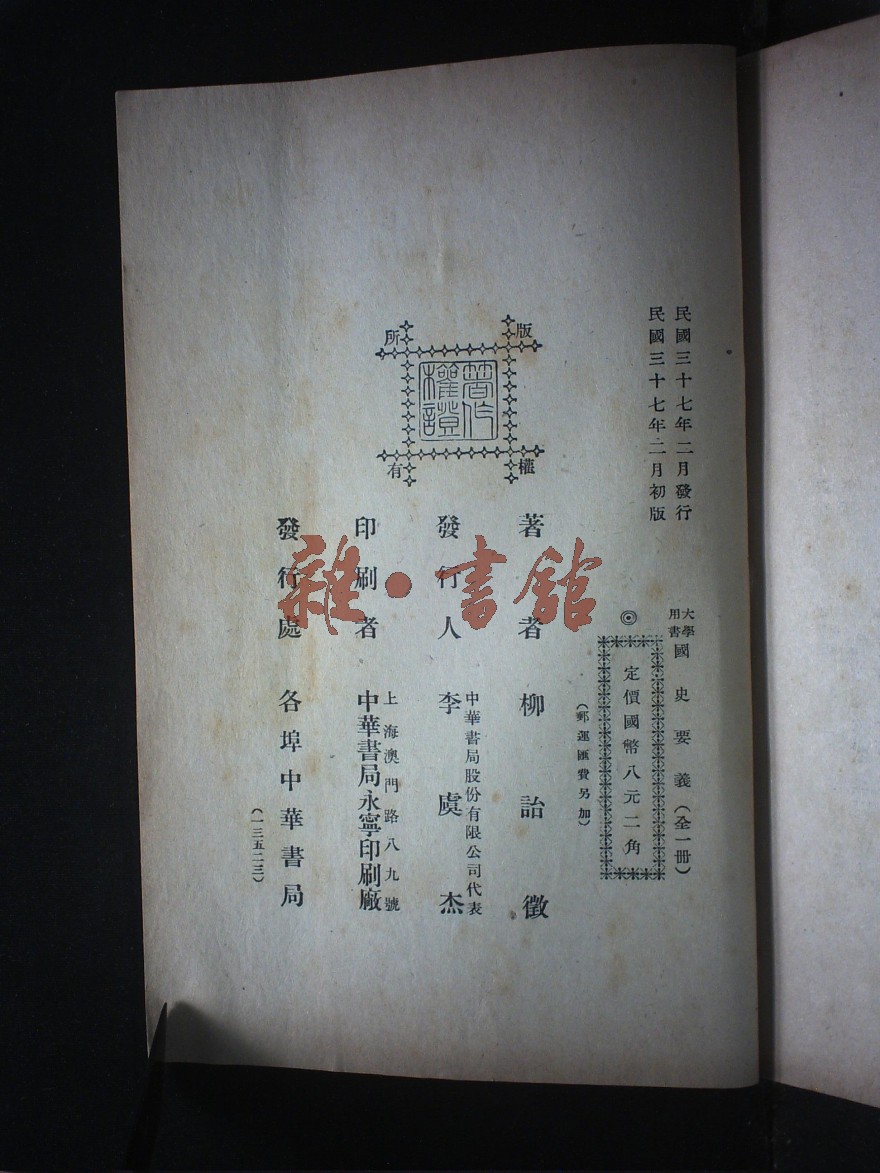 民國三十七年二月發行
民國三十七年二月初版
大學用書 國史要義（全一冊）
◎定價國幣八元二角
（郵運匯費另加）
版權所有
著作權證
著者 柳詒徵
發行人 中華書局股份有限公司代表 李虞杰
印刷者 上海澳門路八九號 中華書局永寧印刷廠
發行處 各埠中華書局
（一三五二三）
雜·書館